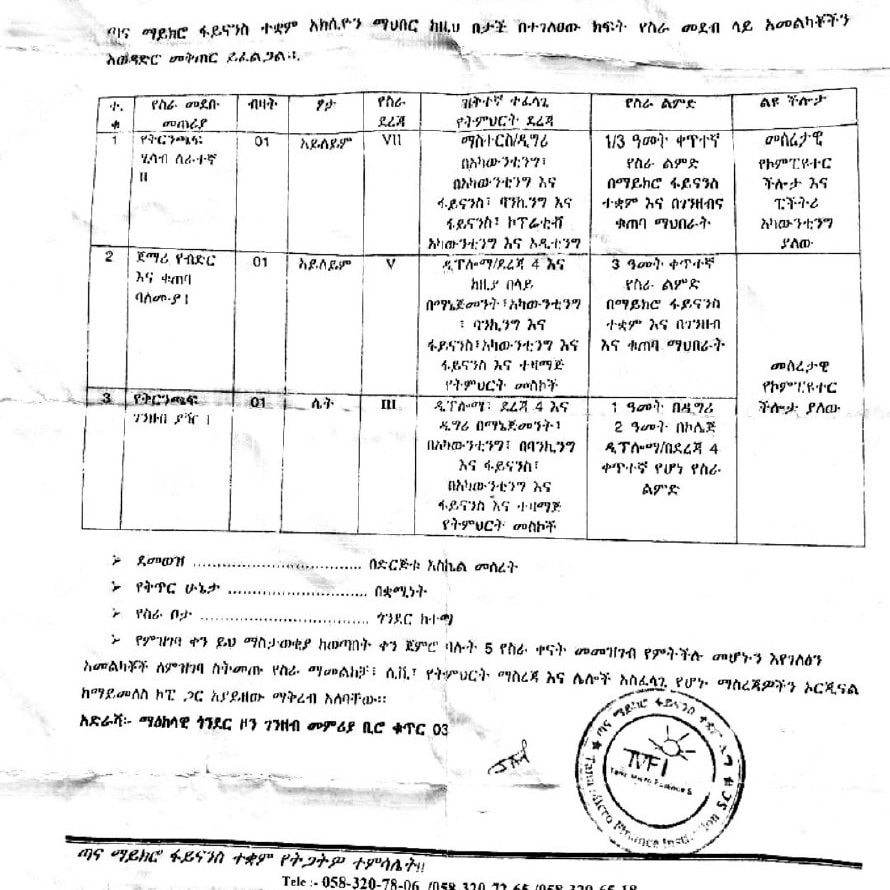 ጣና ማይክሮ ፋይናንስ ተቋም አክሲዮን ማህበር ከዚህ በታች በተገለፀው ክፍት የስራ መደብ ላይ አመልካቾችን
አወዳድሮ መቅጠር ይፈልጋል፡፡
ተ.ቁ
የስራ መደቡ መጠሪያ
ብዛት
ፆታ
የስራ ደረጃ
ዝቅተኛ ተፈላጊ የትምህርት ደረጃ
የስራ ልምድ
ልዩ ችሎታ
1
የቅርንጫፍ
ሂሳብ ሰራተኛ
II
01
አይለይም
VII
ማስተርስ/ዲግሪ
በአካውንቲንግ፣
በአካውንቲንግ እና
ፋይናንስ፣ ባንኪንግ እና
ፋይናንስ፣ ኮፕሬቲቭ
አካውንቲንግ እና ኦዲቲንግ
1/3 ዓመት ቀጥተኛ
የስራ ልምድ
በማይክሮ ፋይናንስ
ተቋም እና በገንዘብና
ቁጠባ ማህበራት
መሰረታዊ
የኮምፒዩተር
ችሎታ እና
ፒችትሪ
አካውንቲንግ
ያለው
2
ጀማሪ የብድር
እና ቁጠባ
ባለሙያ I
01
አይለይም
V
ዲፕሎማ/ደረጃ 4 እና
ከዚያ በላይ
በማኔጅመንት፣አካውንቲንግ
፣ ባንኪንግ እና
ፋይናንስ፣አካውንቲንግ እና
ፋይናንስ እና ተዛማጅ
የትምህርት መስኮች
3 ዓመት ቀጥተኛ
የስራ ልምድ
በማይክሮ ፋይናንስ
ተቋም እና በገንዘብ
እና ቁጠባ ማህበራት
መሰረታዊ
የኮምፒዩተር
ችሎታ ያለው
3
የቅርንጫፍ
ገንዘብ ያዥ I
01
ሴት
III
ዲፕሎማ፣ ደረጃ 4 እና
ዲግሪ በማኔጅመንት፣
በአካውንቲንግ፣ በባንኪንግ
እና ፋይናንስ፣
በአካውንቲንግ እና
ፋይናንስ እና ተዛማጅ
የትምህርት መስኮች
1 ዓመት በዲግሪ
2 ዓመት በኮሌጅ
ዲፕሎማ/በደረጃ 4
ቀጥተኛ የሆነ የስራ
ልምድ
➢ ደመወዝ ................................... በድርጅቱ እስኬል መሰረት
➢ የቅጥር ሁኔታ ............................. በቋሚነት
➢ የስራ ቦታ ................................... ጎንደር ከተማ
➢ የምዝገባ ቀን ይህ ማስታወቂያ ከወጣበት ቀን ጀምሮ ባሉት 5 የስራ ቀናት መመዝገብ የምትችሉ መሆኑን እየገለፅን
አመልካቾች ለምዝገባ ስትመጡ የስራ ማመልከቻ፣ ሲ.ቪ፣ የትምህርት ማስረጃ እና ሌሎች አስፈላጊ የሆኑ ማስረጃዎችን ኦርጂናል
ከማይመለስ ኮፒ ጋር አያይዘው ማቅረብ አለባቸው፡፡
አድራሻ፡- ማዕከላዊ ጎንደር ዞን ገንዘብ መምሪያ ቢሮ ቁጥር 03
ጣና ማይክሮ ፋይናንስ ተቋም አ.ማ
TMFI
Tana Micro Finance S
Tana Micro Finance Institution SC
ጣና ማይክሮ ፋይናንስ ተቋም የትጋትዎ ተምሳሌት!!
Tele :- 058-320-78-06 /058-320-72-65 /058-320-65-18